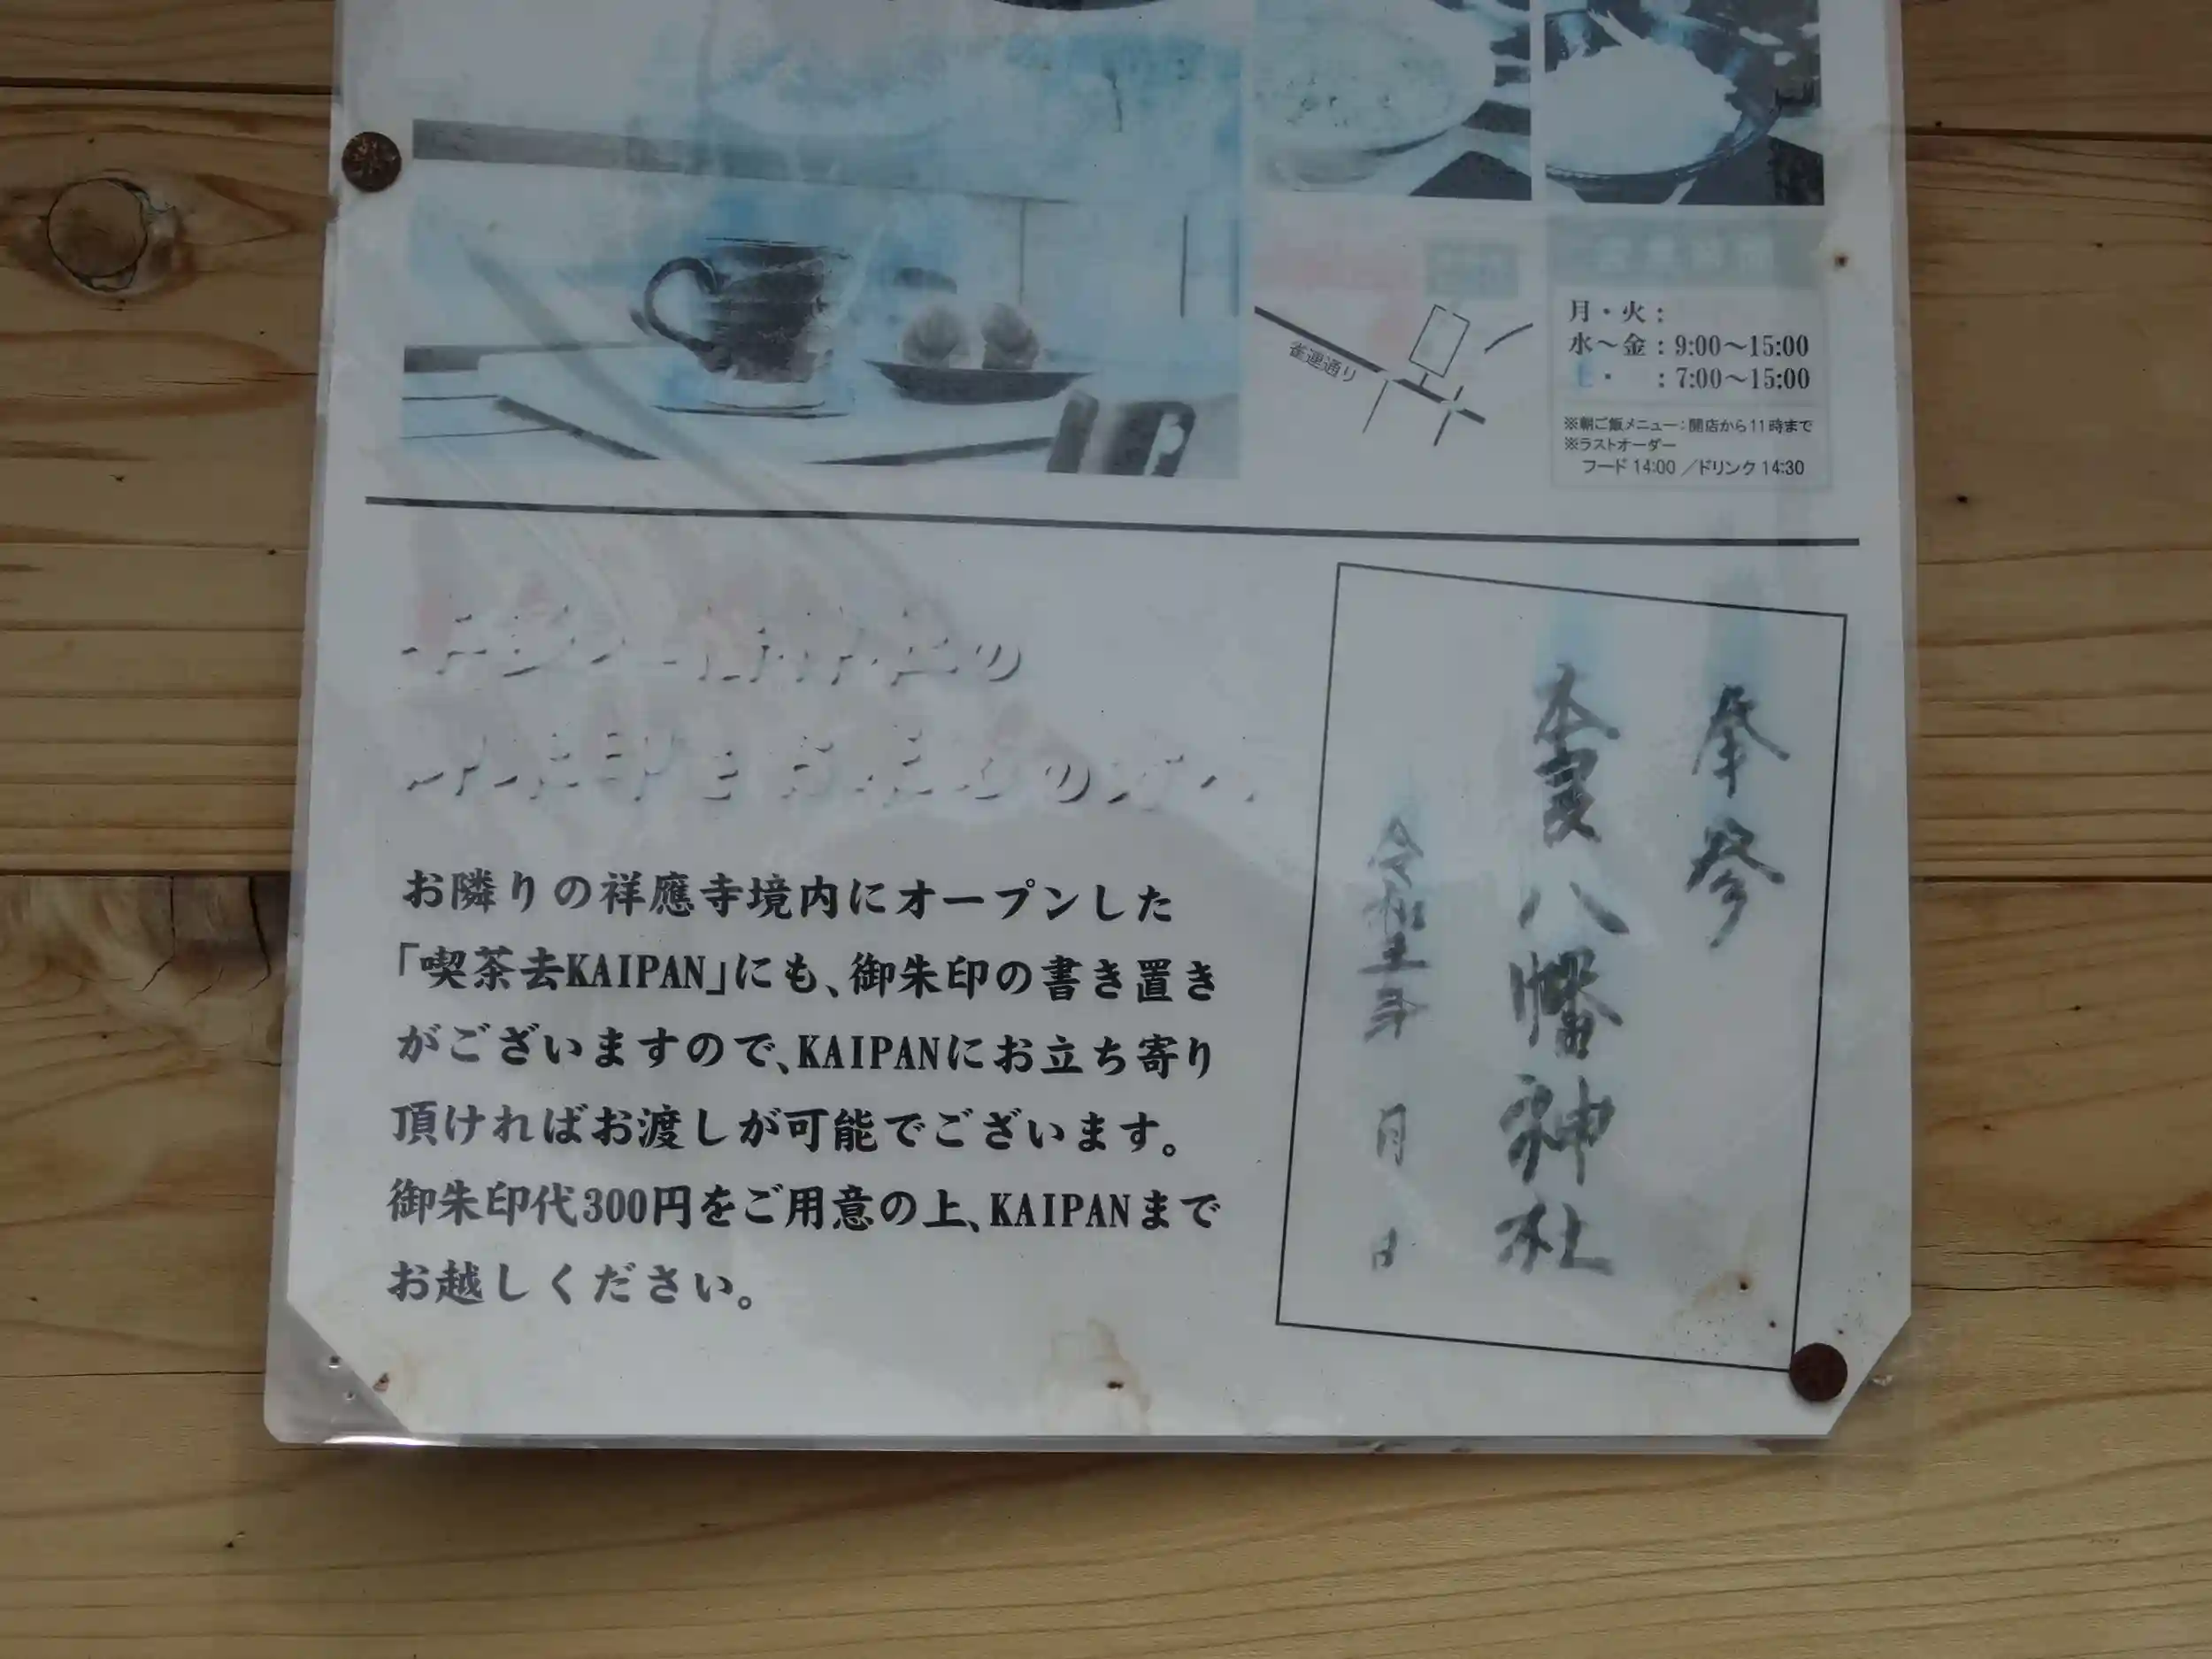 雀運通り
月・火：
水～金：9:00～15:00
土・　：7:00～15:00
※朝ご飯メニュー：開店から11時まで
※ラストオーダー
フード 14:00 ／ドリンク 14:30
お隣りの祥應寺境内にオープンした
「喫茶去KAIPAN」にも、御朱印の書き置き
がございますので、KAIPANにお立ち寄り
頂ければお渡しが可能でございます。
御朱印代300円をご用意の上、KAIPANまで
お越しください。
奉参
八幡神社
令和五年　月　日